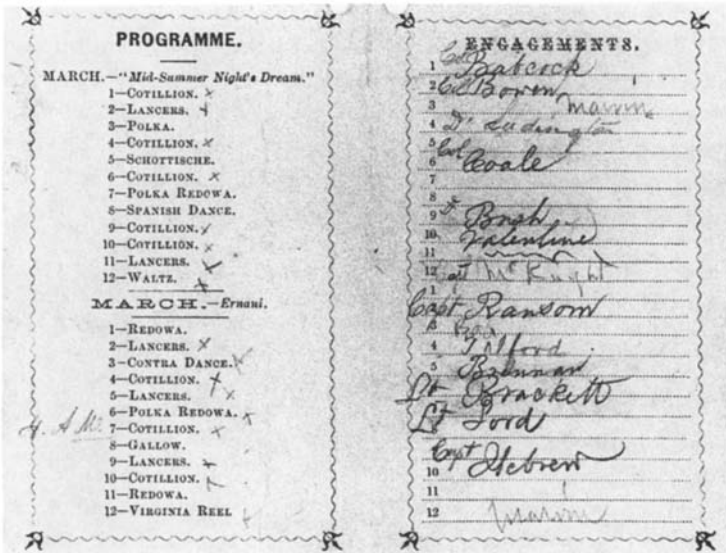 PROGRAMME.
MARCH.—"Mid-Summer Night's Dream."
1—COTILLION. x
2—LANCERS. x
3—POLKA.
4—COTILLION. x
5—SCHOTTISCHE.
6—COTILLION. x
7—POLKA REDOWA.
8—SPANISH DANCE.
9—COTILLION. x
10—COTILLION. x
11—LANCERS. x
12—WALTZ. x
MARCH.—Ernani.
1—REDOWA.
2—LANCERS. x
3—CONTRA DANCE. x
4—COTILLION. x
5—LANCERS. x
6—POLKA REDOWA. x
7—COTILLION. x
8—GALLOW.
9—LANCERS. x
10—COTILLION.
11—REDOWA.
12—VIRGINIA REEL
ENGAGEMENTS.
1 Col Babcock
2 Col Bowen
3 Marvin
4 Dr Ludington
5
6 Col Coale
7
8
9 Bush
10 Valentine
11
12 McKnight
1
2 Capt Ransom
3
4 Tilford
5 Brennan
Lt Brackett
7 Lt Lord
Capt Hebrew
10
11
12 Marvin